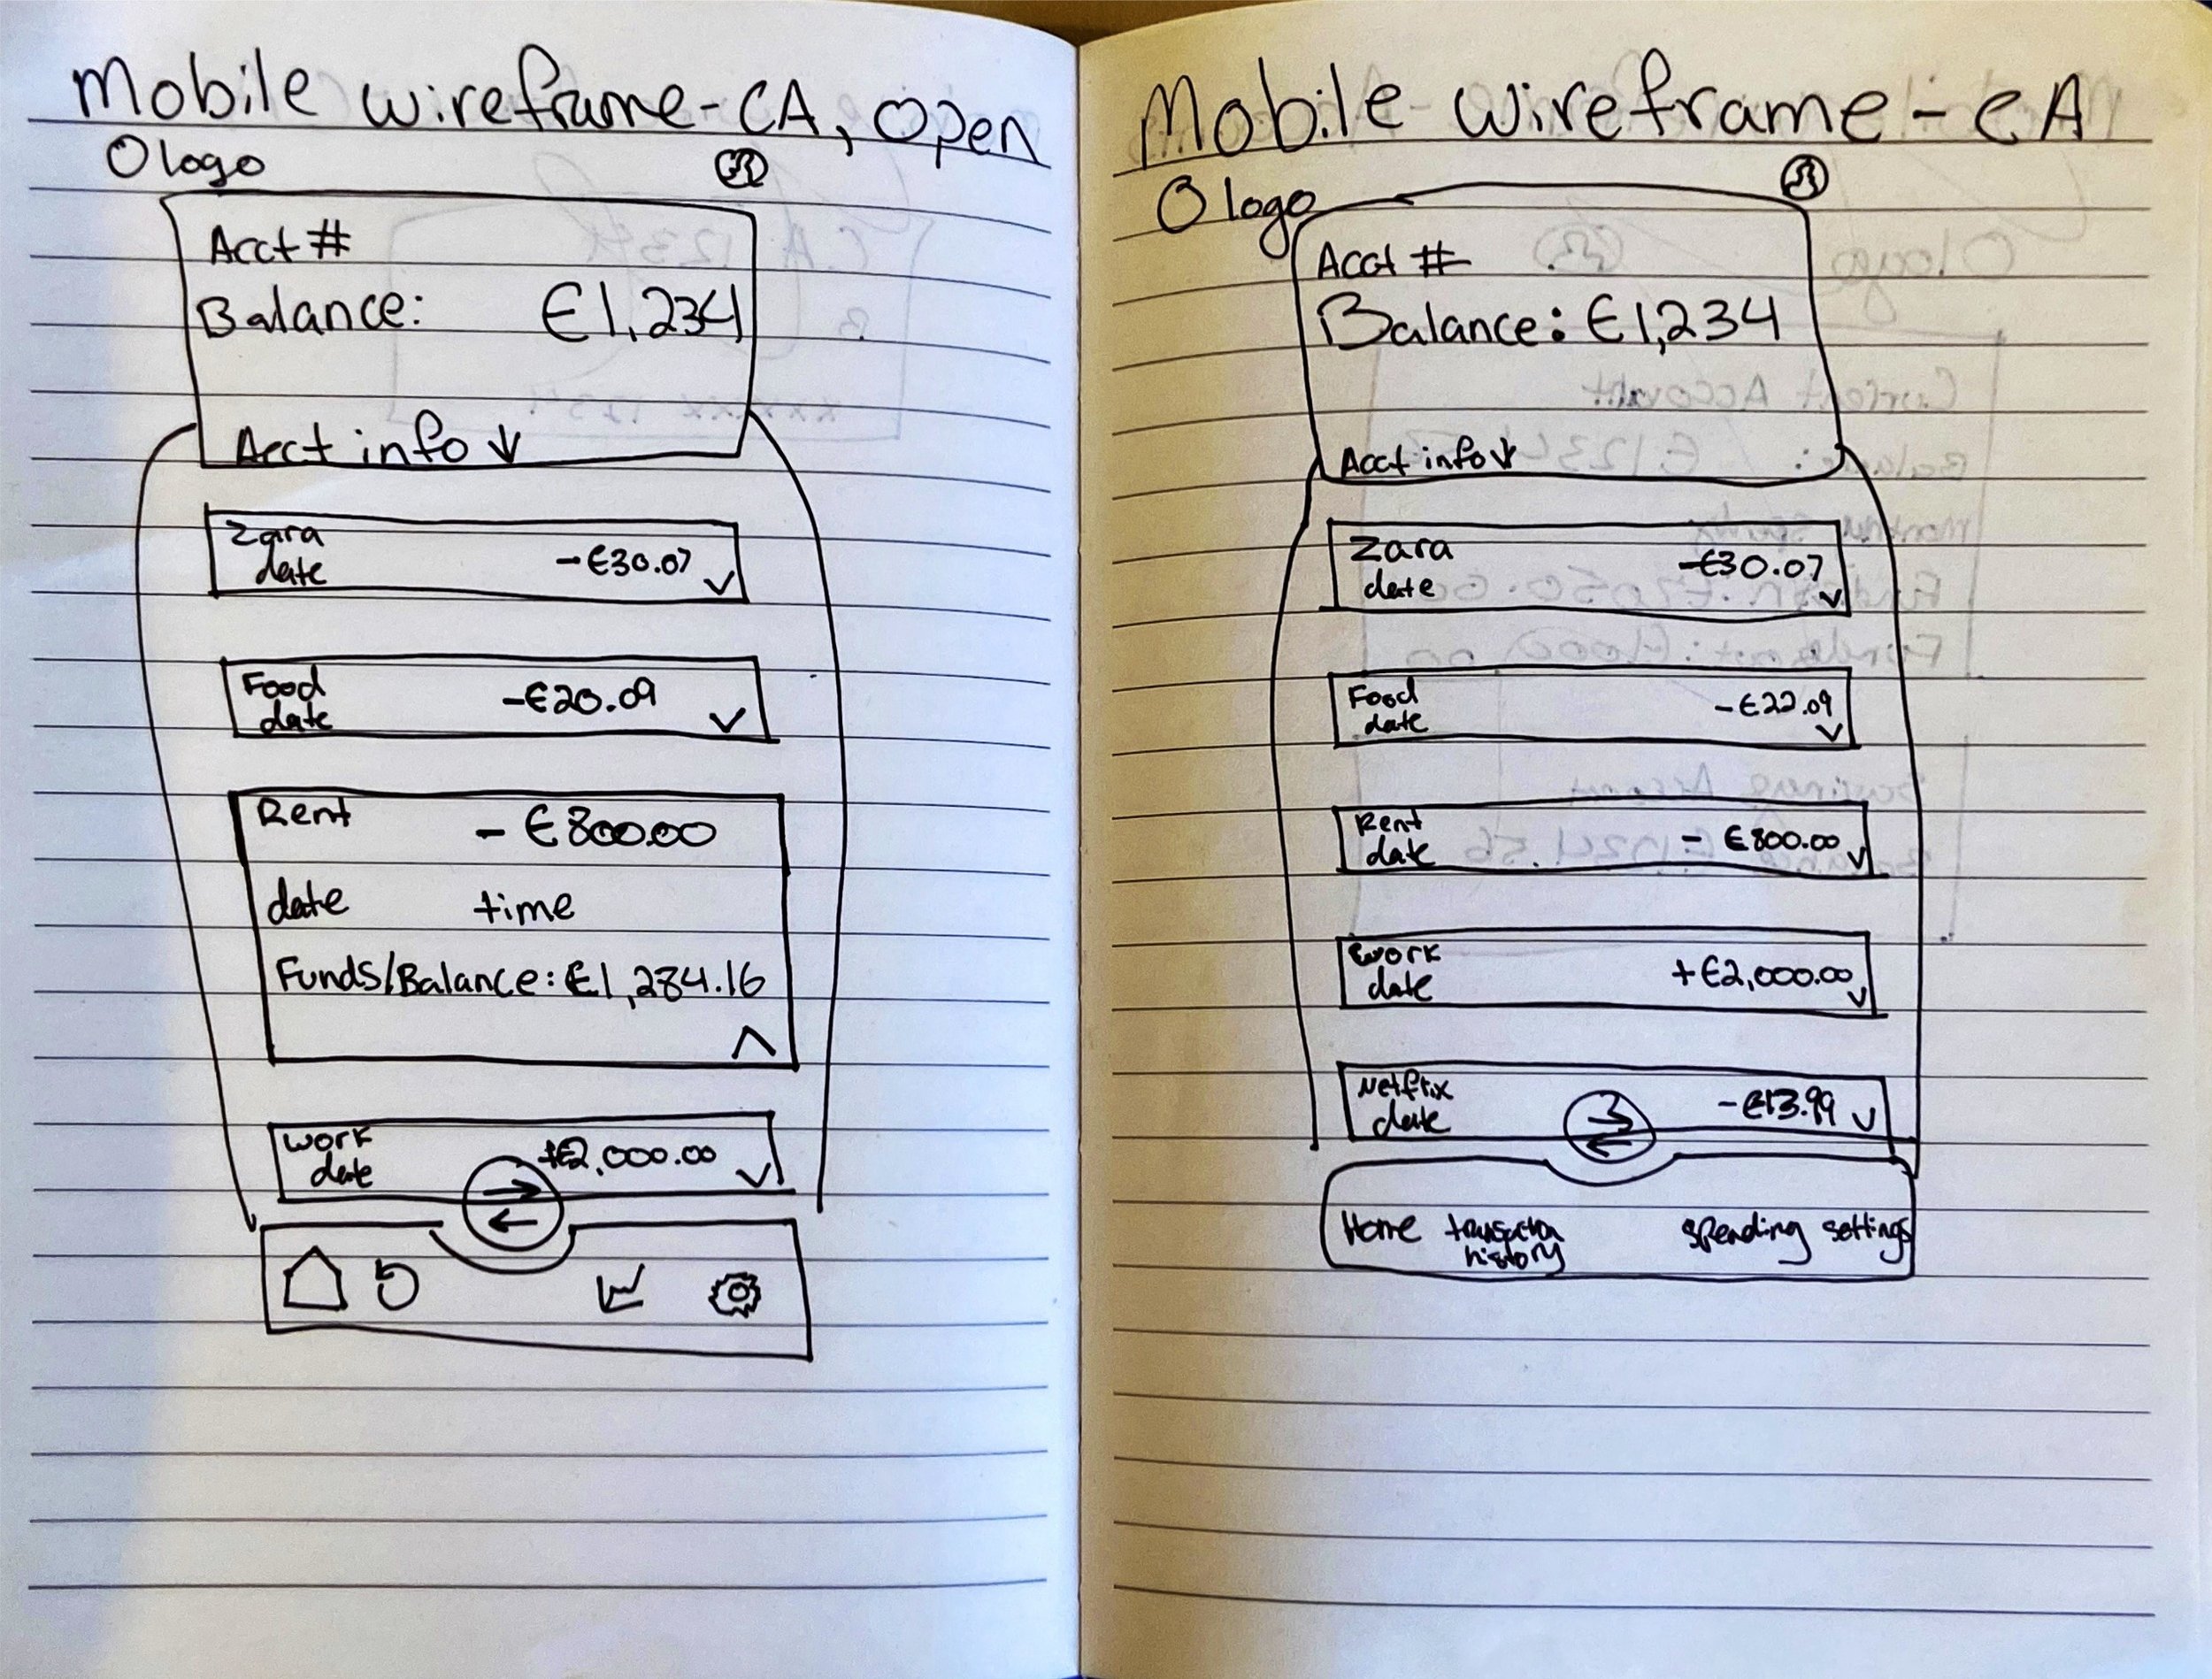 Mobile wireframe-CA, Open
logo
Acct #
Balance: €1,234
Acct info ↓
Zara
date -€30.07
Food
date -€20.09
Rent - €800.00
date time
Funds/Balance: €1,284.16
work
date +€2,000.00
Mobile wireframe-CA
logo
Acct #
Balance: €1,234
Acct info ↓
Zara
date -€30.07
Food
date -€22.09
Rent
date - €800.00
work
date +€2,000.00
Netflix
date -€13.99
Home transaction history spending settings